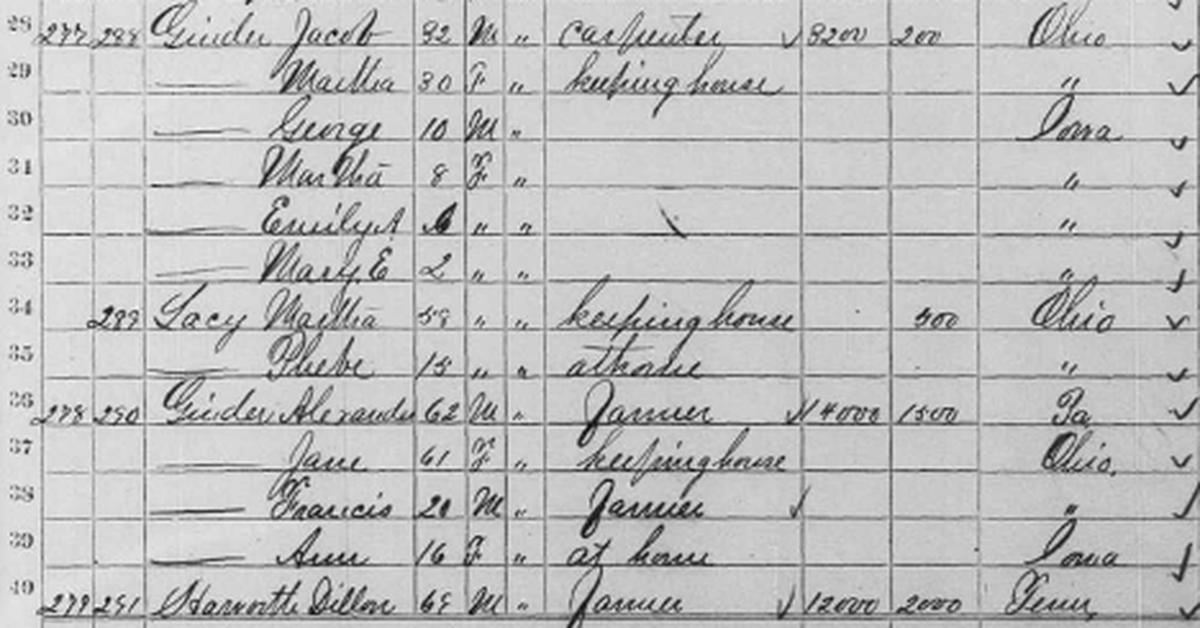 28 277 288 Ginder Jacob 32 M " carpenter 3200 200 Ohio
29 Martha 30 F " keeping house "
30 George 10 M " Iowa
31 Martha 8 F " "
32 Emily A " " "
33 Mary E 2 " " "
34 289 Lacy Martha 58 " " keeping house 500 Ohio
35 Phebe 15 " " at home "
36 278 290 Ginder Alexander 62 M " Farmer 14000 1500 Pa
37 Jane 61 F " keeping house Ohio.
38 Francis 20 M " Farmer "
39 Ann 16 F " at home Iowa
40 279 291 Haworth Dillon 68 M " Farmer 12000 2000 Tenn,